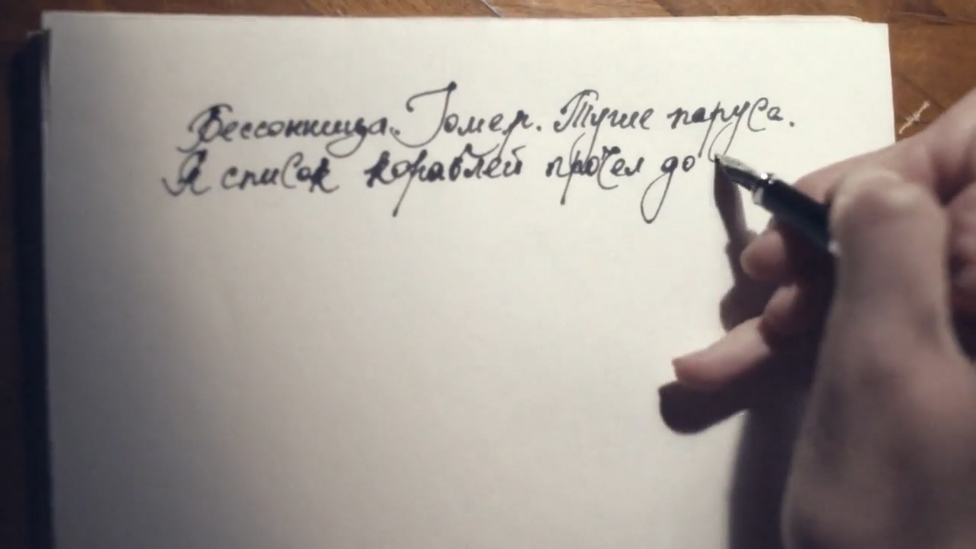 Бессонница. Гомер. Тугие паруса.
Я список кораблей прочел до